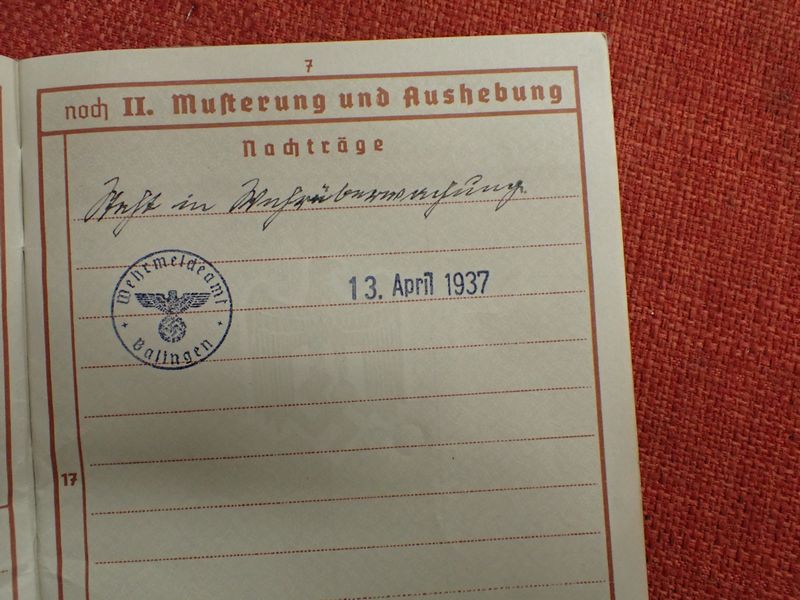 7
noch II. Musterung und Aushebung
Nachträge
Steht in Wehrüberwachung.
Wehrmeldeamt
Balingen
13. April 1937
17